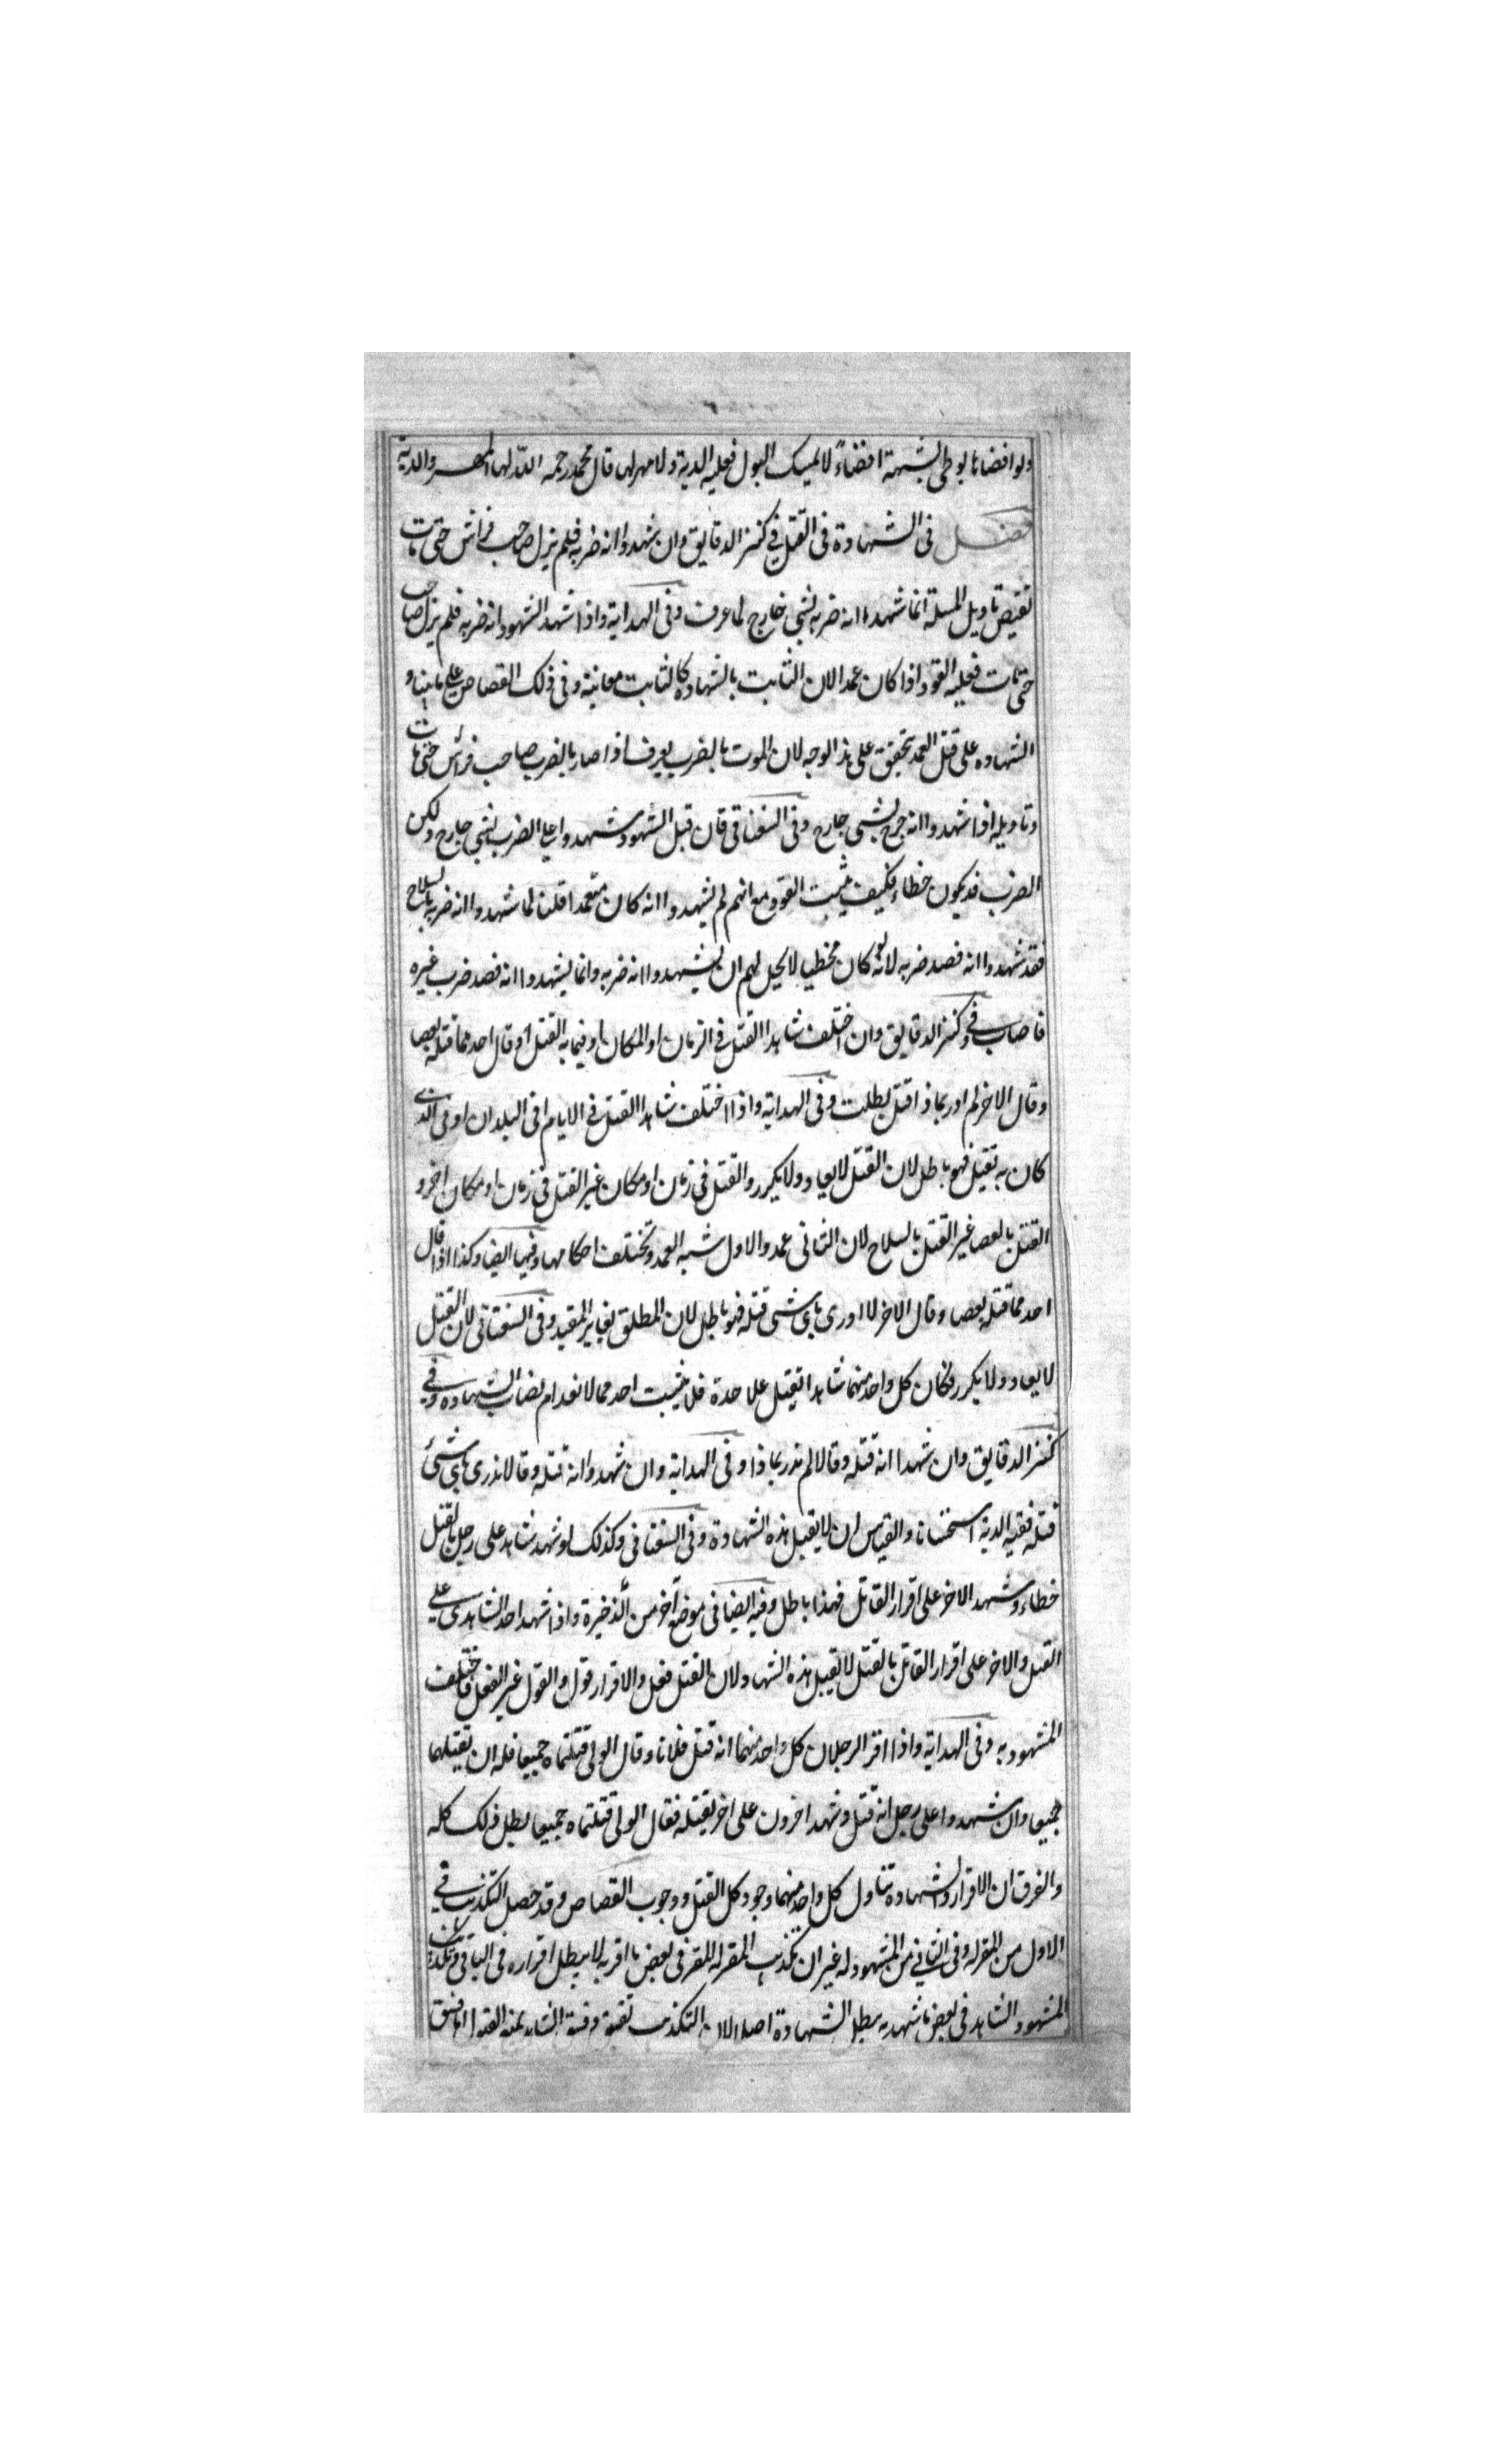 ولو افضاها بوطى بشبهة افضاءً لا يمسك البول فعليه الدية ولا مهر لها قال محمد رحمه الله لها المهر والدية
فصل فى الشهادة فى القتل فى كنز الدقايق وان شهدوا انه ضربه فلم يزل صاحب فراش حتى مات
تقتص تاويل المسلة انما شهدوا انه ضربه بشى جارح لما عرف وفى الهداية واذا شهد الشهود انه ضربه فلم يزل صاحب
حتى مات فعليه القود اذا كان عمدا لان الثابت بالشهادة كالثابت معاينة وفى ذلك القصاص على ما بينا و
الشهاده على قتل العمد تحقق على هذا الوجه لان الموت بالضرب يعرف اذا صار بالضرب صاحب فراش حتى مات
وتاويله اذا شهدوا انه جرح بشى جارح وفى السغناقى فان قيل الشهود شهدوا على الضرب بشى جارح ولكن
الضرب قد يكون خطاء فكيف يثبت القود مع انهم لم يشهدوا انه كان متعمدا قلنا لما شهدوا انه ضربه بالسلاح
فقد شهدوا انه قصد ضربه لانه لو كان مخطيا لا يحل لهم ان يشهدوا انه ضربه وانما يشهدوا انه قصد ضرب غيره
فاصاب وفى كنز الدقايق وان اختلف شاهدا القتل فى الزمان او المكان او فيما به القتل او قال احدهما قتله بعصا
وقال الاخر لم ادر بماذا قتل بطلت وفى الهداية واذا اختلف شاهدا القتل فى الايام او فى البلدان او فى الذى
كان به تقتيل فهو باطل لان القتل لا يعاد ولا يكرر والقتل فى زمان او مكان غير القتل فى زمان او مكان اخر و
القتل بالعصا غير القتل بالسلاح لان الثانى عمد والاول شبه العمد وتختلف احكامها وفيها ايضا وكذا اذا قال
احدهما قتله بعصا وقال الاخر لا ادرى باى شى قتله فهو باطل لان المطلق يغاير المقيد وفى السغناقى لان القتل
لا يعاد ولا يكرر فكان كل واحد منهما شاهدا بقتل علاحدة فلا يثبت احدهما لانعدام نصاب الشهاده وفى
كنز الدقايق وان شهدا انه قتله وقالا لم ندر بماذا وفى الهداية وان شهدوا انه قتله وقالا لا ندرى باى شئ
قتله ففيه الدية استحسانا والقياس ان لا يقبل هذه الشهادة وفى السغناقى وكذلك لو شهد شاهد على رجل بالقتل
خطاء وشهد الاخر على اقرار القاتل فهذا باطل وفيه ايضا فى موضع آخر من الذخيرة واذا شهد احد الشاهدى على
القتل والاخر على اقرار القاتل بالقتل لا يقبل هذه الشهاد ولان القتل فعل والاقرار قول والقول غير الفعل فاختلف
المشهود به وفى الهداية واذا اقر الرجلان كل واحد منهما انه قتل فلانا وقال الولى قتلتماه جميعا فله ان يقتلهما
جميعا وان شهدوا على رجل انه قتل وشهد اخرون على اخر بقتله فقال الولى قتلتماه جميعا بطل ذلك كله
والفرق ان الاقرار والشهادة تناول كل واحد منهما وجود كل القتل ووجوب القصاص وقد حصل التكذيب فى
الاول من المقر له وفى الثانى من المشهود له غير ان تكذيب المقر له المقر فى بعض ما اقر به لا يبطل اقراره فى الباقى وتكذيب
المشهود الشاهد فى بعض ما شهد به يبطل الشهادة اصلا لان التكذيب تفسيق وفسق الشاهد يمنع القبول اما فسق